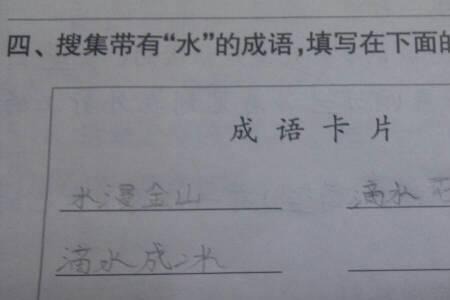 四、搜集带有“水”的成语,填写在下面的
成语卡片
水漫金山 滴水
滴水成冰